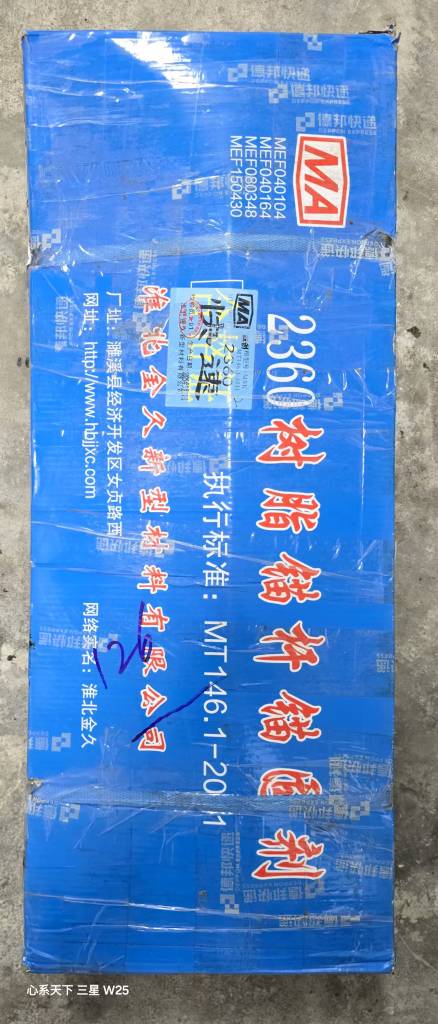 MA
MEF040104
MEF040164
MEF080348
MEF150430
2360 树脂锚杆锚固剂
执行标准：MT146.1-2011
淮北金久新型材料有限公司
厂址：濉溪县经济开发区女贞路西
网址：http://www.hbjjxc.com
网络实名：淮北金久
MA
2360
快速
126
德邦快递
德邦快递
心系天下 三星 W25